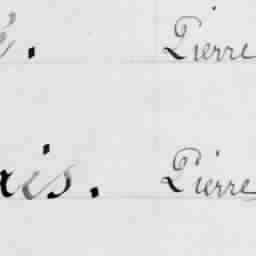 é. Pierre
xis. Pierre